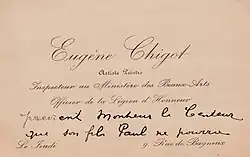 Eugène Chigot
Artiste Peintre
Inspecteur au Ministère des Beaux-Arts
Officier de la Légion d'Honneur
Monsieur le Censeur
que son fils Paul ne pourra
Le Jeudi
9, Rue de Bagneux